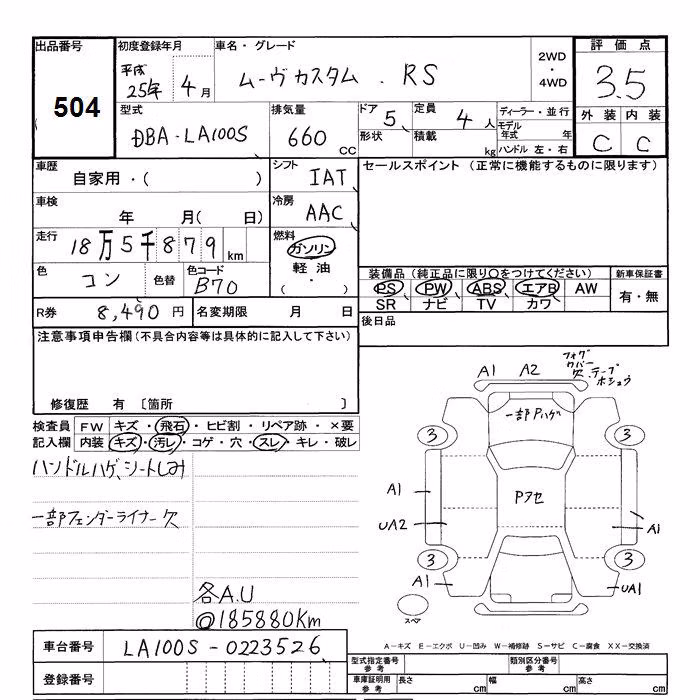 出品番号 初度登録年月 車名・グレード 評価点
504 平成 25年 4月 ムーヴカスタム . RS 2WD ・ 4WD 3.5
型式 排気量 ドア 5 定員 4人 ディーラー・並行 外装 内装
DBA-LA100S 660cc 形状 積載 kg モデル年式 年 C C
ハンドル 左・右
車歴 自家用・( ) シフト IAT セールスポイント (正常に機能するものに限ります)
車検 年 月( 日) 冷房 AAC
走行 18万5千879km 燃料 ガソリン
軽油
・
( )
色 コン 色替 色コード B70
装備品(純正品に限り○をつけてください) 新車保証書
PS PW ABS エアB AW 有・無
SR ナビ TV カワ
R券 8,490円 名変期限 月 日 後日品
注意事項申告欄(不具合内容等は具体的に記入して下さい)
修復歴 有 〔箇所 〕
検査員 FW キズ・飛石・ヒビ割・リペア跡・×要
記入欄 内装 キズ・汚レ・コゲ・穴・スレ・キレ・破レ
ハンドルハゲ、シートしみ
一部フェンダーライナー欠
各A.U
@185880Km
A1 A2 フォグ
カバー
欠、テープ
ホシュウ
一部Pハゲ
3 3
A1 Pアセ
UA2 A1
3 3
A1 UA1
スペア
車台番号 LA100S-0223526
登録番号
A-キズ E-エクボ U-凹み W-補修跡 S-サビ C-腐食 XX-交換済
型式指定番号 参考 類別区分番号 参考
車庫証明用 参考 長さ cm 幅 cm 高さ cm